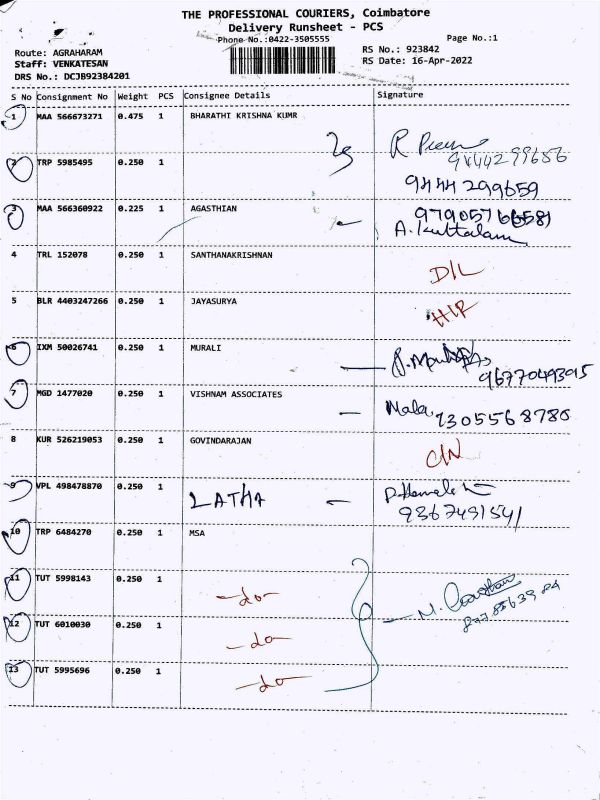 THE PROFESSIONAL COURIERS, Coimbatore
Delivery Runsheet - PCS
Phone No.:0422-3505555
Page No.:1
Route: AGRAHARAM
RS No.: 923842
Staff: VENKATESAN
RS Date: 16-Apr-2022
DRS No.: DCJB92384201
S No Consignment No Weight PCS Consignee Details Signature
1 MAA 566673271 0.475 1 BHARATHI KRISHNA KUMR
R
9444299656
2 TRP 5985495 0.250 1
9444299659
3 MAA 566360922 0.225 1 AGASTHIAN
A. Kuttalam
4 TRL 152078 0.250 1 SANTHANAKRISHNAN
D/L
5 BLR 4403247266 0.250 1 JAYASURYA
6 IXM 50026741 0.250 1 MURALI
9677049395
7 MGD 1477020 0.250 1 VISHNAM ASSOCIATES
Mala
8 KUR 526219053 0.250 1 GOVINDARAJAN
C/N
9 VPL 498478870 0.250 1 LATHA
9367491541
10 TRP 6484270 0.250 1 MSA
11 TUT 5998143 0.250 1 -do-
12 TUT 6010030 0.250 1 -do-
13 TUT 5995696 0.250 1 -do-